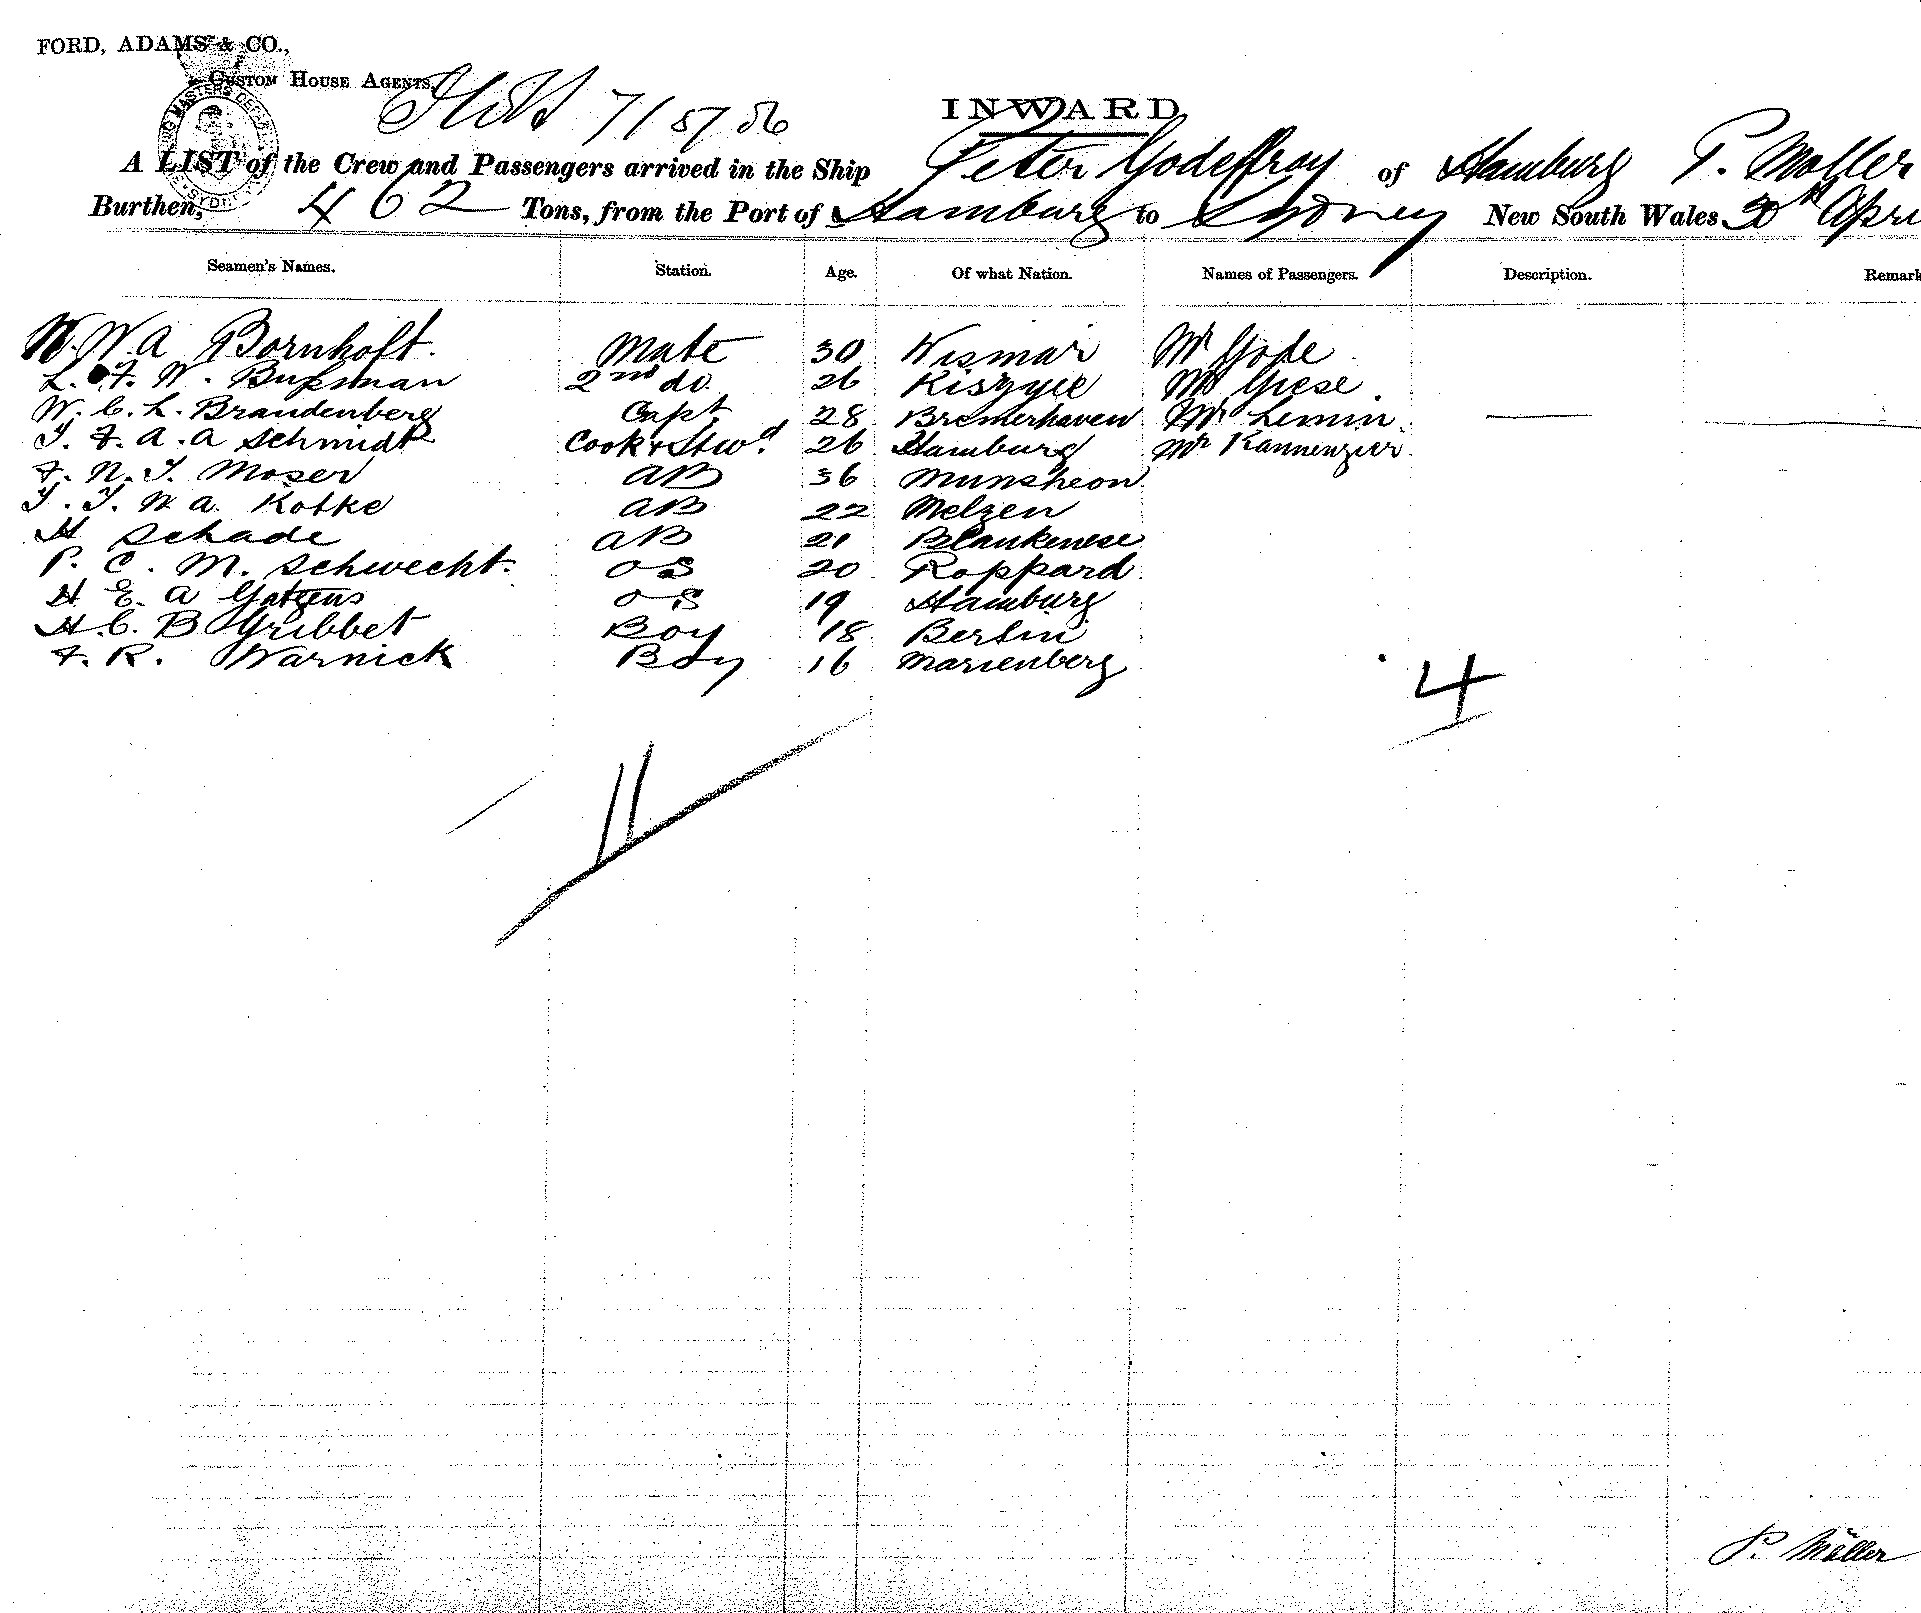 FORD, ADAMS & CO.,
CUSTOM HOUSE AGENTS.
INWARD
A LIST of the Crew and Passengers arrived in the Ship Peter Godeffroy of Hamburg P. Moller
Burthen, 462 Tons, from the Port of Hamburg to Sydney New South Wales 30th Apri
Seamen's Names. Station. Age. Of what Nation. Names of Passengers. Description. Remark
W. W A Bornholt. Mate 30 Wismar Mr Gode
L. F. W. Bußman 2nd do 26 Mr Giese
W. C. L. Brandenberg Capt 28 Bremerhaven Mr Lemin
J. F. A. A Schmidt Cook & Stwd. 26 Hamburg Mr
F. N. J. Moser AB 36 Munsheon
J. J. N A. Kotke AB 22 Melzen
H Schade AB 21 Blankenese
P. C. M. Schwecht. OS 20 Roppard
H E. A OS 19 Hamburg
H. C. B Gribbet Boy 18 Berlin
F. R. Warnick Boy 16 Marienberg
4
11
P. Möller